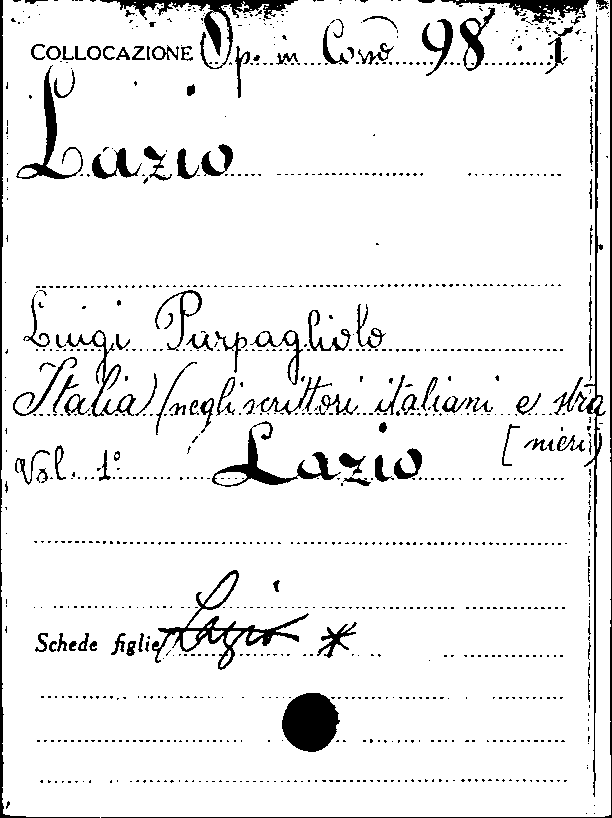 COLLOCAZIONE Op. in Corso 98. 1
Lazio
Luigi Parpagliolo
Italia (negli scrittori italiani e stra
[nieri)
Vol. 1° Lazio
Schede figlie Lazio *